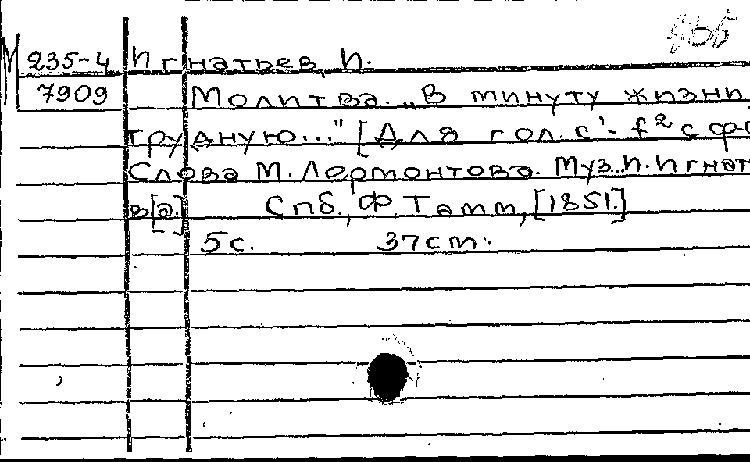 М 235-4 Игнатьев, И.
7909 Молитва. „В минуту жизни
трудную..." [Для гол. c¹-f² с фо
Слова М. Лермонтова. Муз. И. Игнат
в[а.] Спб., Ф. Тамм, [1851.]
5 с. 37 см.